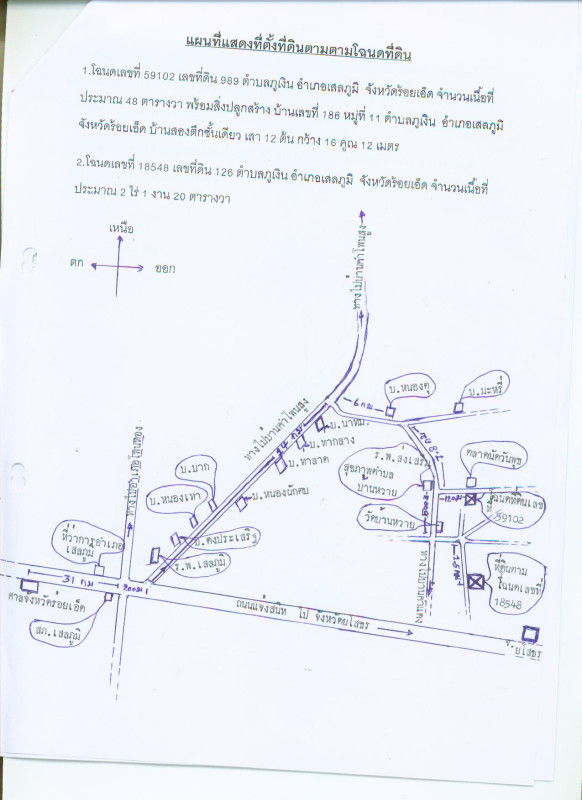 แผนที่แสดงที่ตั้งที่ดินตามตามโฉนดที่ดิน
1.โฉนดเลขที่ 59102 เลขที่ดิน 989 ตำบลภูเงิน อำเภอเสลภูมิ จังหวัดร้อยเอ็ด จำนวนเนื้อที่
ประมาณ 48 ตารางวา พร้อมสิ่งปลูกสร้าง บ้านเลขที่ 186 หมู่ที่ 11 ตำบลภูเงิน อำเภอเสลภูมิ
จังหวัดร้อยเอ็ด บ้านสองตึกชั้นเดียว เสา 12 ต้น กว้าง 16 คูณ 12 เมตร
2.โฉนดเลขที่ 18548 เลขที่ดิน 126 ตำบลภูเงิน อำเภอเสลภูมิ จังหวัดร้อยเอ็ด จำนวนเนื้อที่
ประมาณ 2 ไร่ 1 งาน 20 ตารางวา
เหนือ
ตก
ออก
6 กม
บ.หนองตุ
บ.มะหรี่
14 กม
บ.นาทม
บ.ท่ากลาง
บ.ท่าลาด
บ.หนองผักตบ
ร.พ.ส่งเสริม
สุขภาพตำบล
บ้านหวาย
ตลาดนัดวันพุธ
บ.บาก
บ.หนองเทา
บ.ดงประเสริฐ
ร.พ.เสลภูมิ
วัดบ้านหวาย
โฉนดที่ดินเลข
ที่
59102
ที่ว่าการอำเภอ
เสลภูมิ
31 กม
200ม
ศาลจังหวัดร้อยเอ็ด
สภ.เสลภูมิ
ที่ดินตาม
โฉนดเลขที่
18548
ถนนแจ้งสนิท ไป จังหวัดยโสธร
จ.
ยโสธร